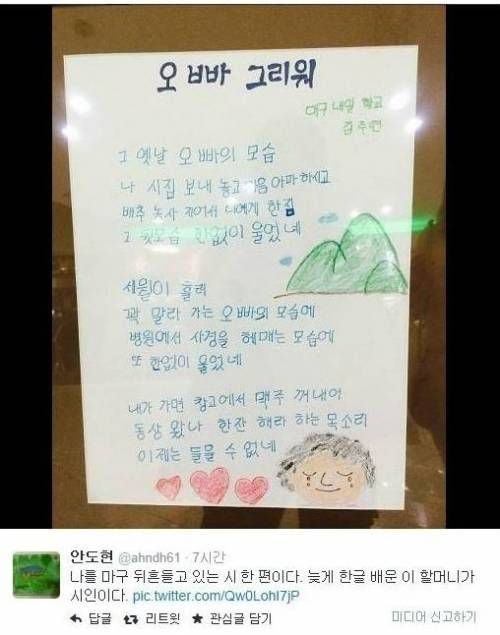 오빠바 그리워
대구 내일 학교
김
그 옛날 오빠의 모습
나 시집 보내 놓고 마음 아파 하시고
배추 농사 지어서 나에게 한짐
그 뒷모습 한없이 울었네
세월이 흘러
꽉 말라 가는 오빠의 모습에
병원에서 사경을 헤매는 모습에
또 한없이 울었네
내가 가면 창고에서 맥주 꺼내어
동상 왔나 한잔 해라 하는 목소리
이제는 들을 수 없네
안도현 @ahndh61 · 7시간
나를 마구 뒤흔들고 있는 시 한 편이다. 늦게 한글 배운 이 할머니가
시인이다. pic.twitter.com/Qw0LohI7jP
답글 리트윗 관심글 담기 미디어 신고하기